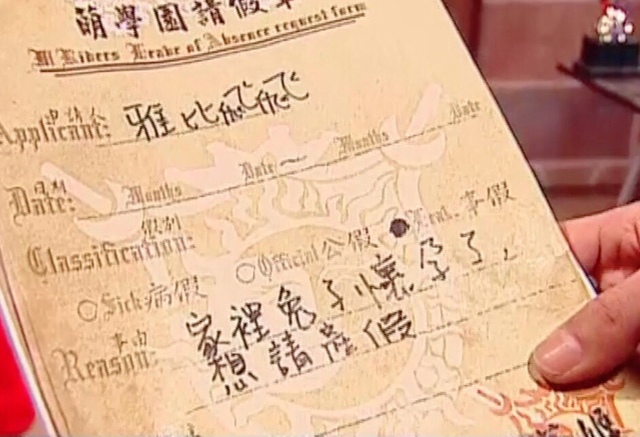 萌學園請假單
M Riders Leave of Absence request form
申請人
Applicant: 雅比飛飛
日期
Date: Months Date ~ Months Date
假別
Classification:
○Sick 病假 ○Official 公假 ●Leave 事假
事由
Reason: 家裡兔子懷孕了,
想請產假